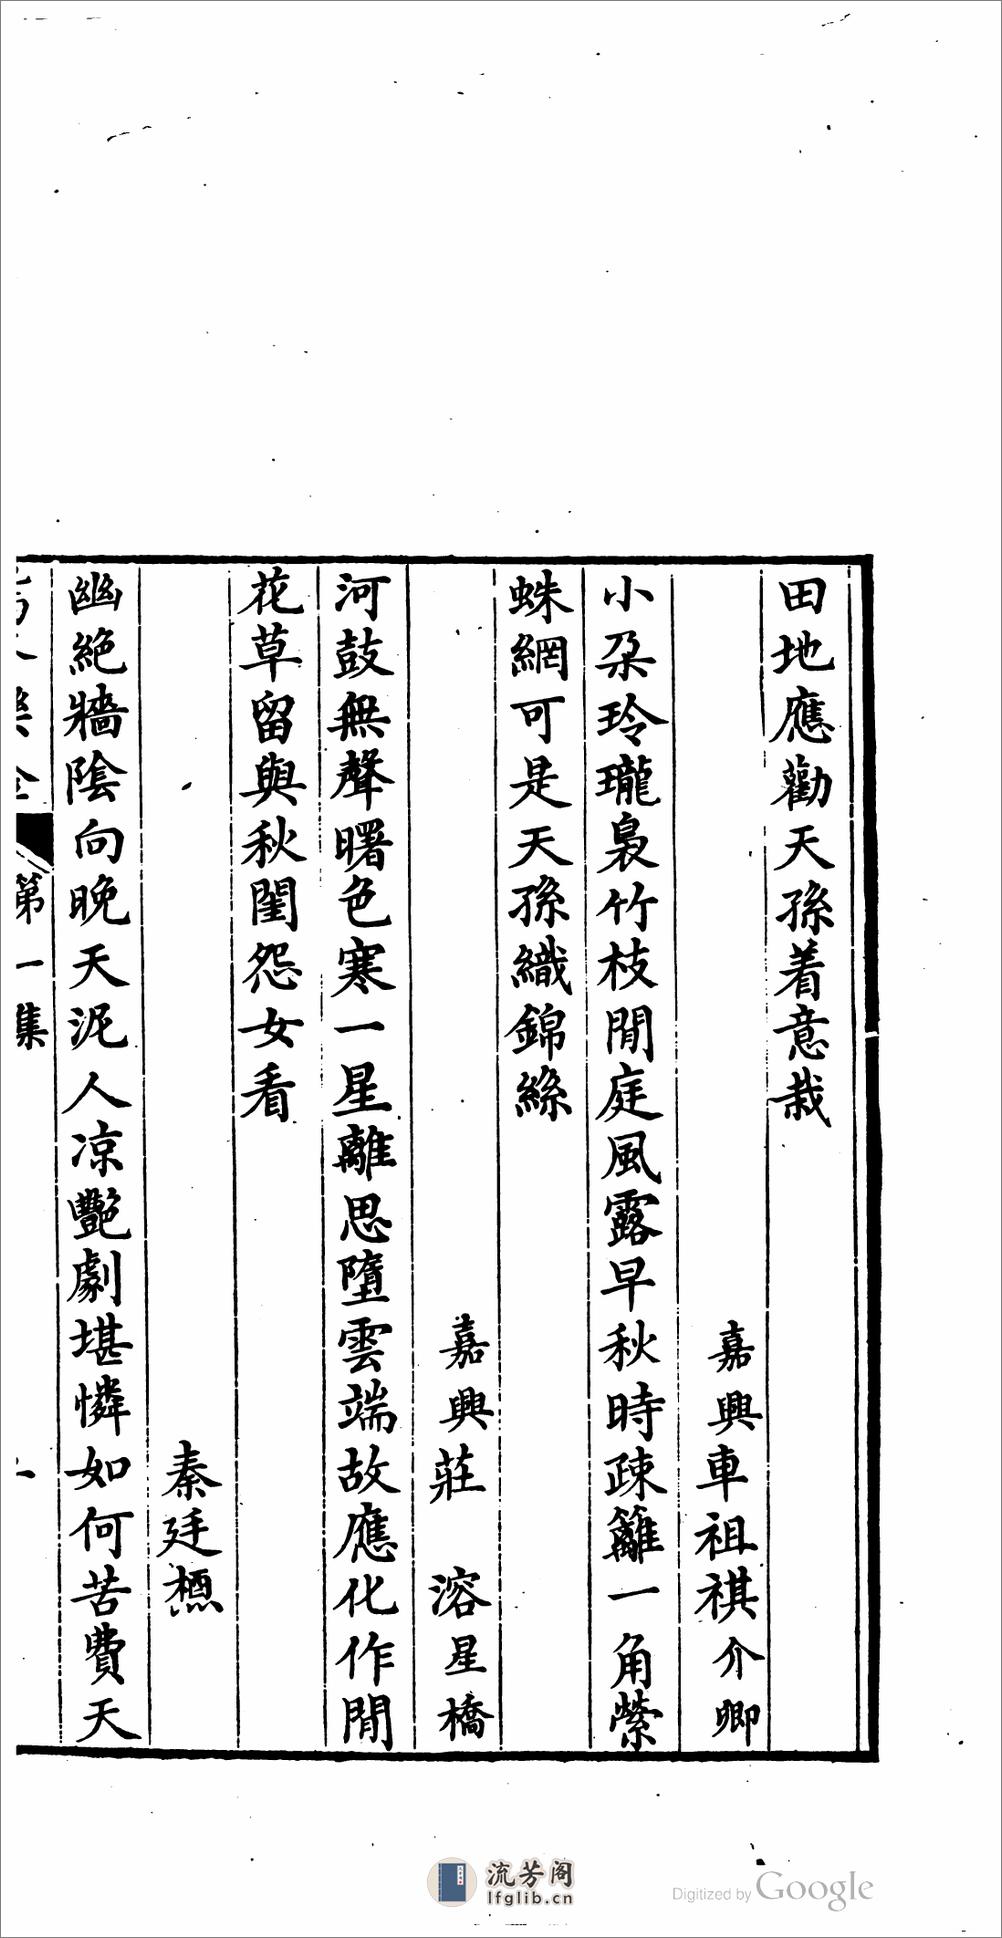 田地應勸天孫着意栽
嘉興車祖祺介卿
小朶玲瓏裊竹枝閒庭風露早秋時疎籬一角縈
蛛網可是天孫織錦絲
嘉興莊　溶星橋
河鼓無聲曙色寒一星離思墮雲端故應化作閒
花草留與秋閨怨女看
秦廷櫄
幽絶牆陰向晚天泥人凉艷劇堪憐如何苦費天
第一集
流芳阁
lfglib.cn
Digitized by Google